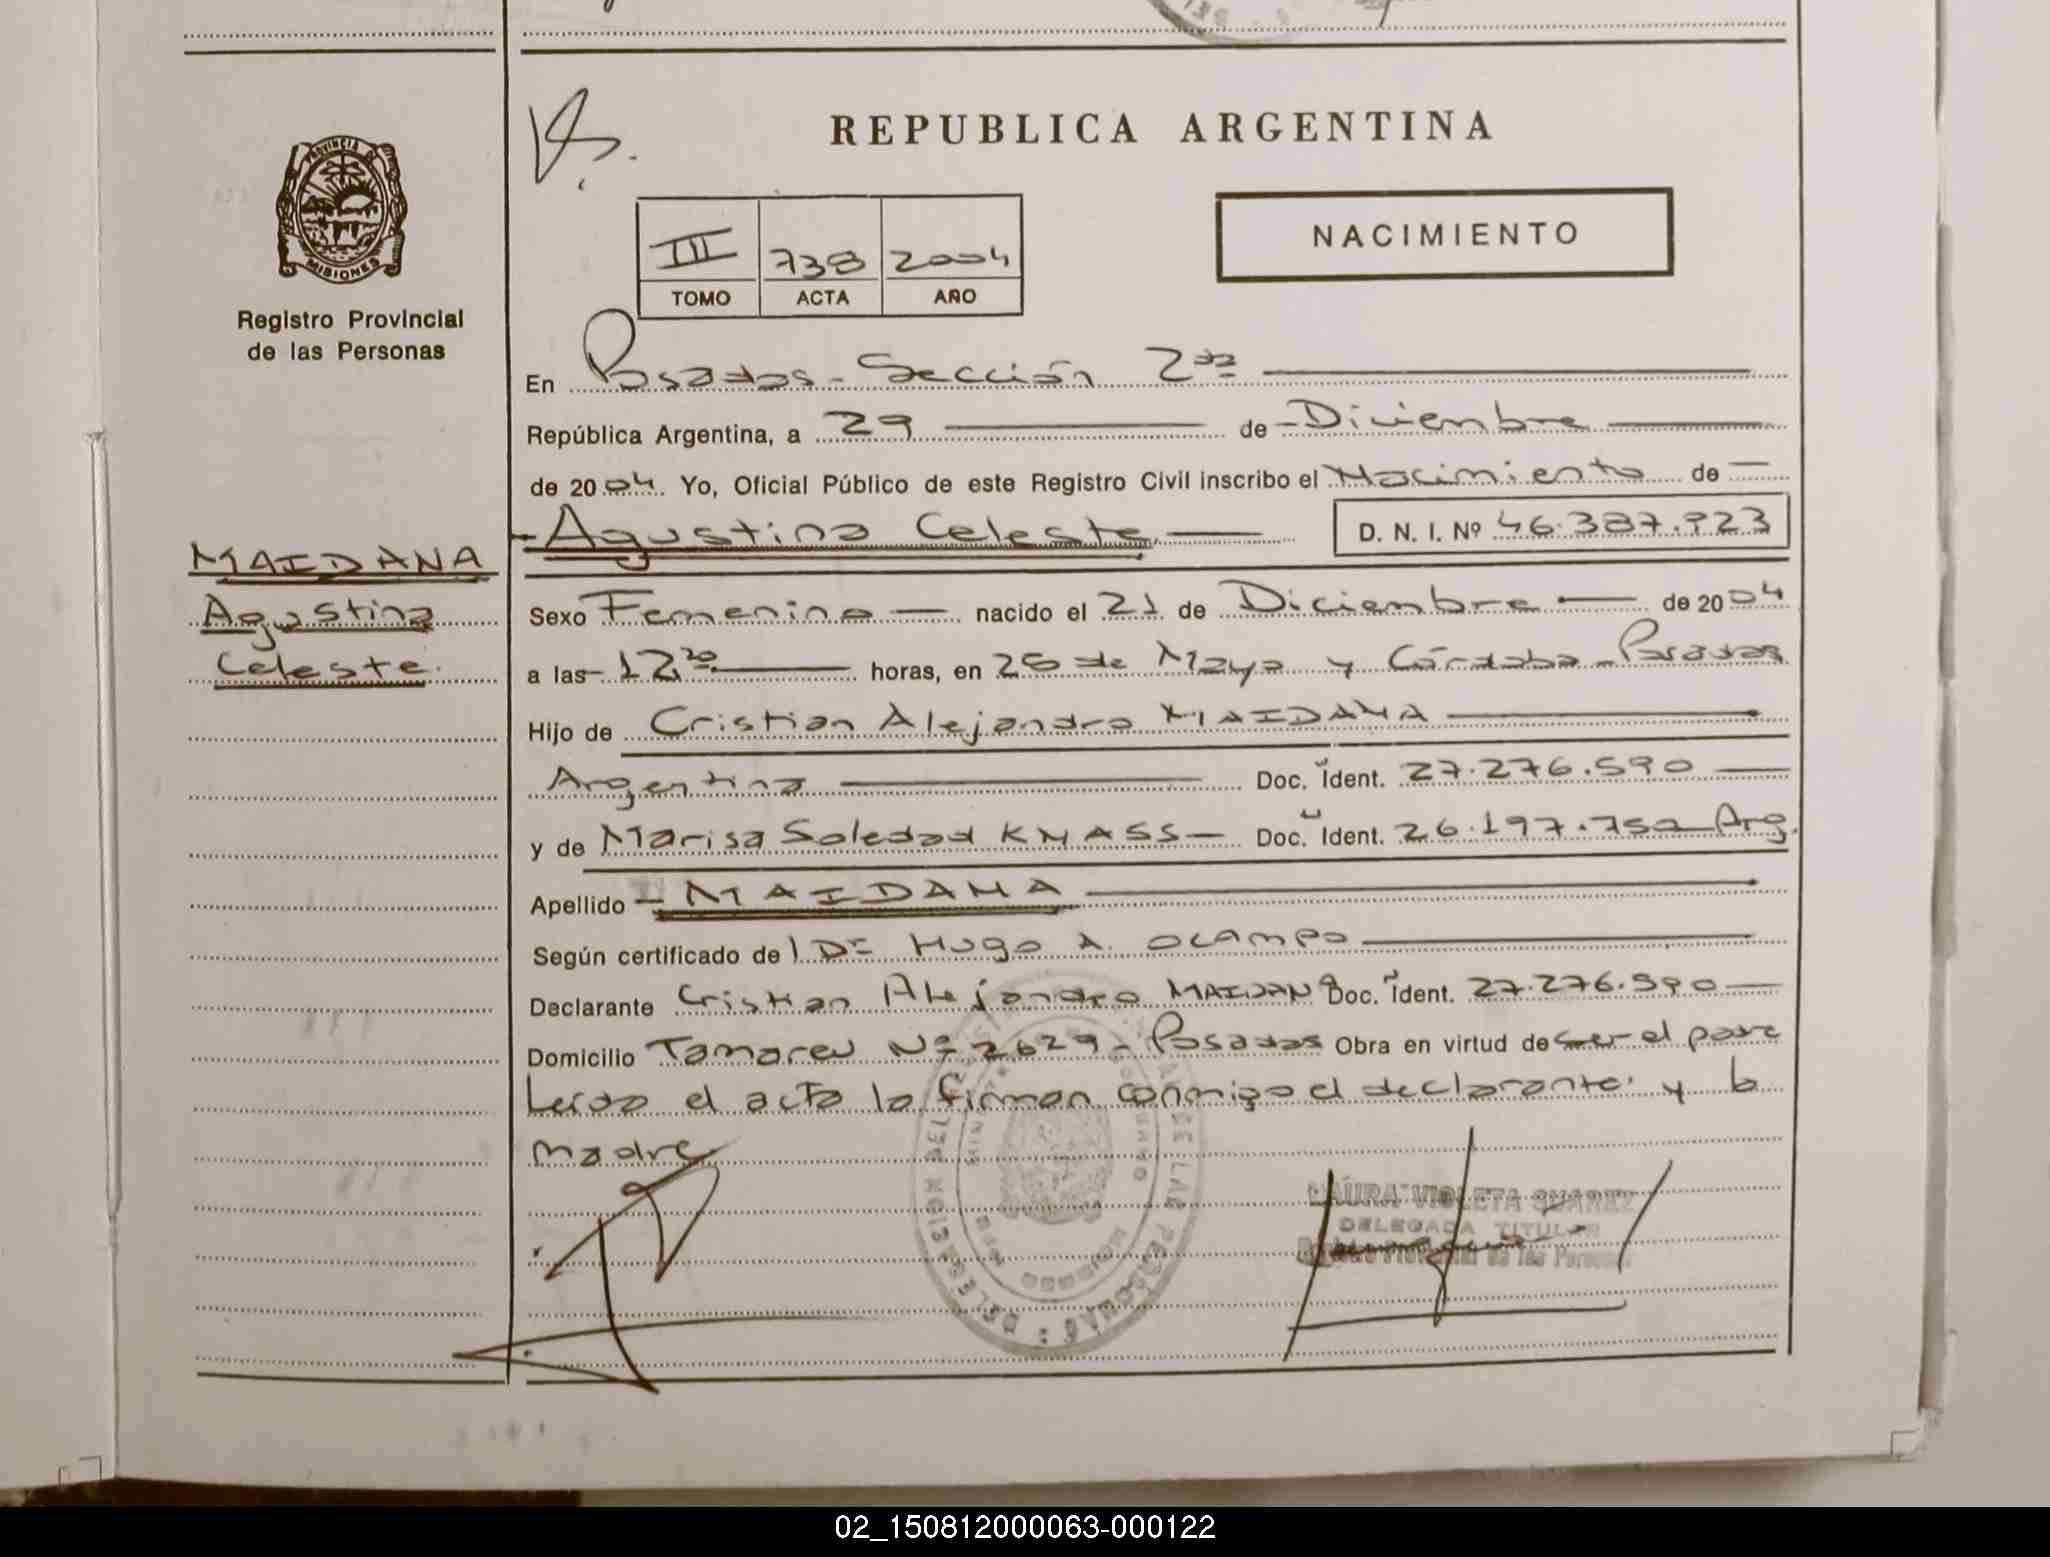 REPUBLICA ARGENTINA
PROVINCIA DE
MISIONES
Registro Provincial
de las Personas
III 738 2004
TOMO ACTA AÑO
NACIMIENTO
En Posadas - Sección 2da
República Argentina, a 29 de Diciembre
de 2004. Yo, Oficial Público de este Registro Civil inscribo el Nacimiento de
Agustina Celeste D. N. I. Nº 46.387.923
MAIDANA
Agustina
Celeste.
Sexo Femenino nacido el 21 de Diciembre de 2004
a las 12,20 horas, en 25 de Mayo y Córdoba - Posadas
Hijo de Cristian Alejandro MAIDANA
Argentina Doc. Ident. 27.276.590
y de Marisa Soledad KNASS Doc. Ident. 26.197.752 Arg.
Apellido MAIDANA
Según certificado de Dr Hugo A. OCAMPO
Declarante Cristian Alejandro MAIDANA Doc. Ident. 27.276.590
Domicilio Tamareu Nº 2629 - Posadas Obra en virtud de ser el padre
Leída el acta la firman conmigo el declarante y la
madre
LAURA VIOLETA SUAREZ
DELEGADA TITULAR
Registro Provincial de las Personas
02_150812000063-000122